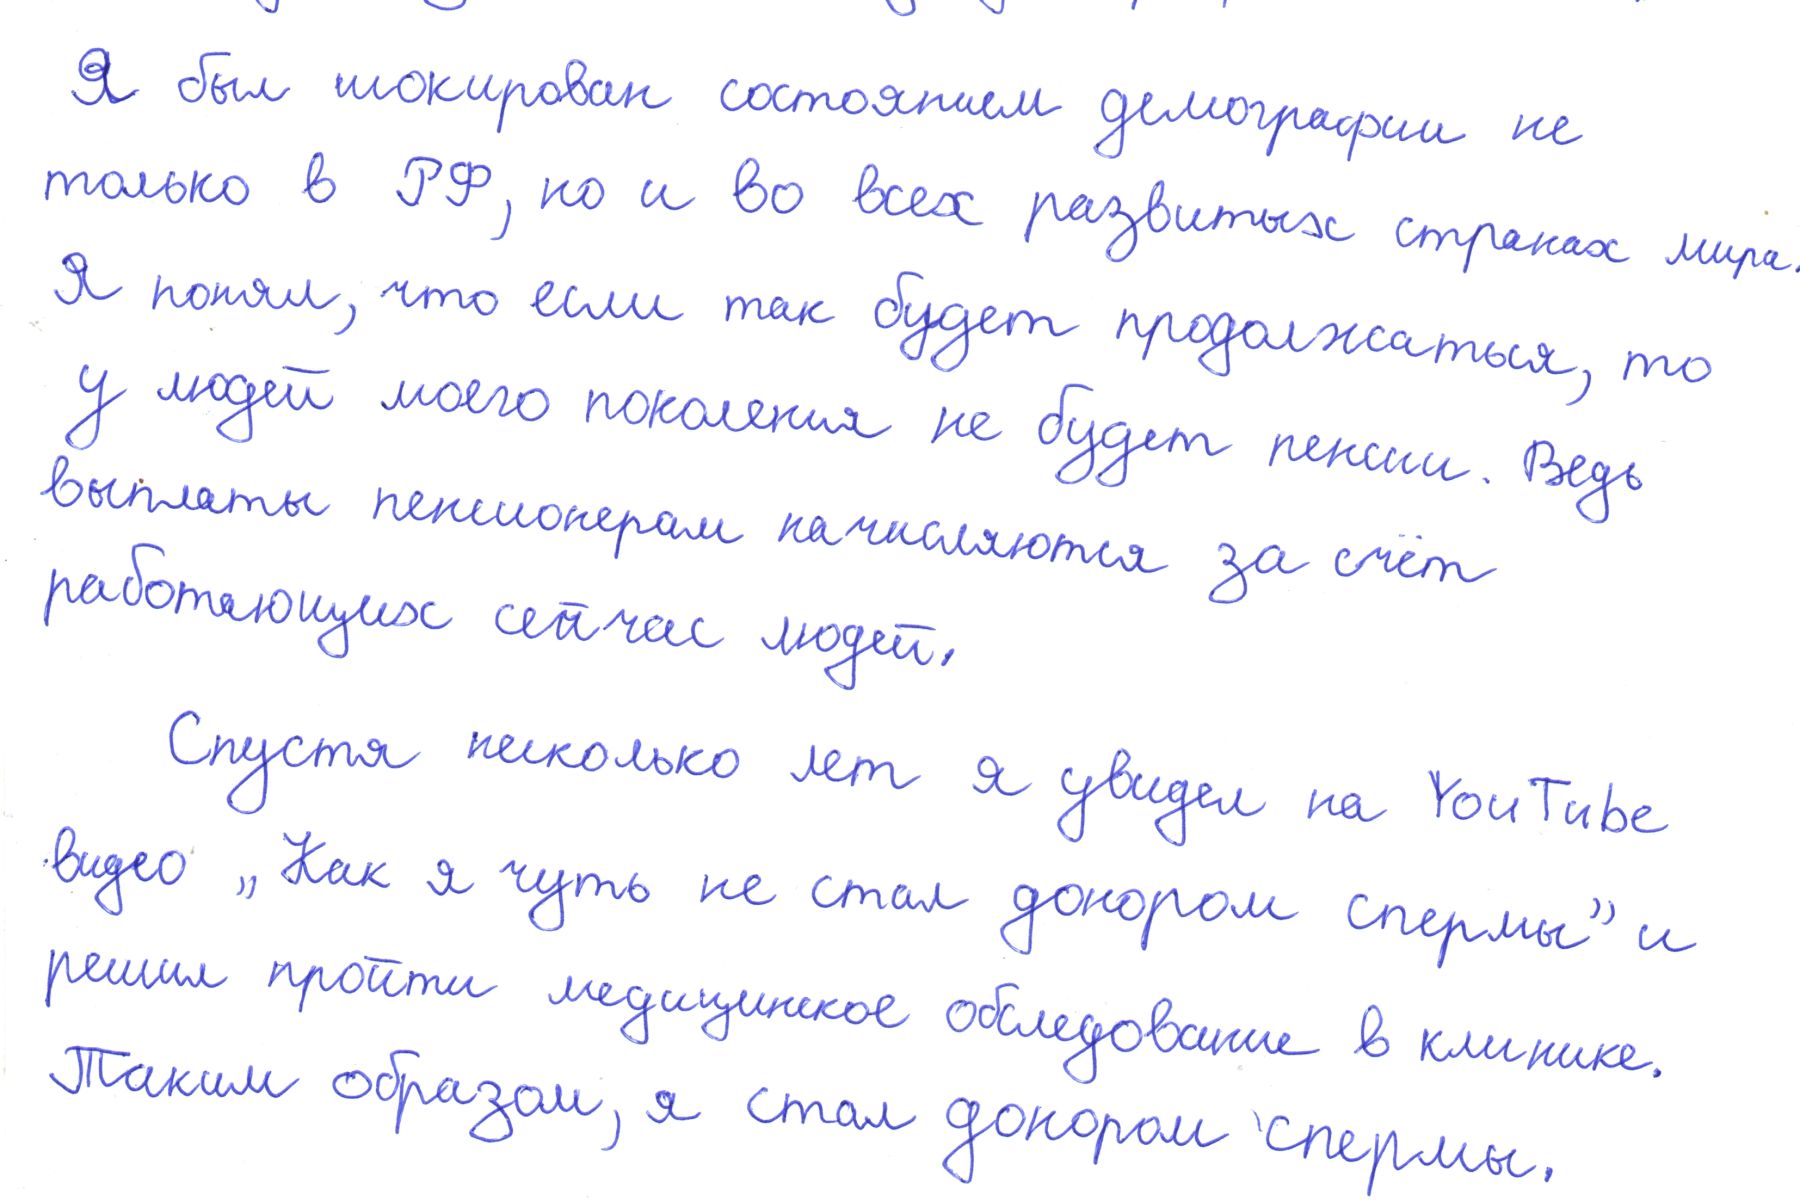 Я был шокирован состоянием демографии не
только в РФ, но и во всех развитых странах мира.
Я понял, что если так будет продолжаться, то
у людей моего поколения не будет пенсии. Ведь
выплаты пенсионерам начисляются за счёт
работающих сейчас людей.
Спустя несколько лет я увидел на YouTube
видео „Как я чуть не стал донором спермы” и
решил пройти медицинское обследование в клинике.
Таким образом, я стал донором спермы.